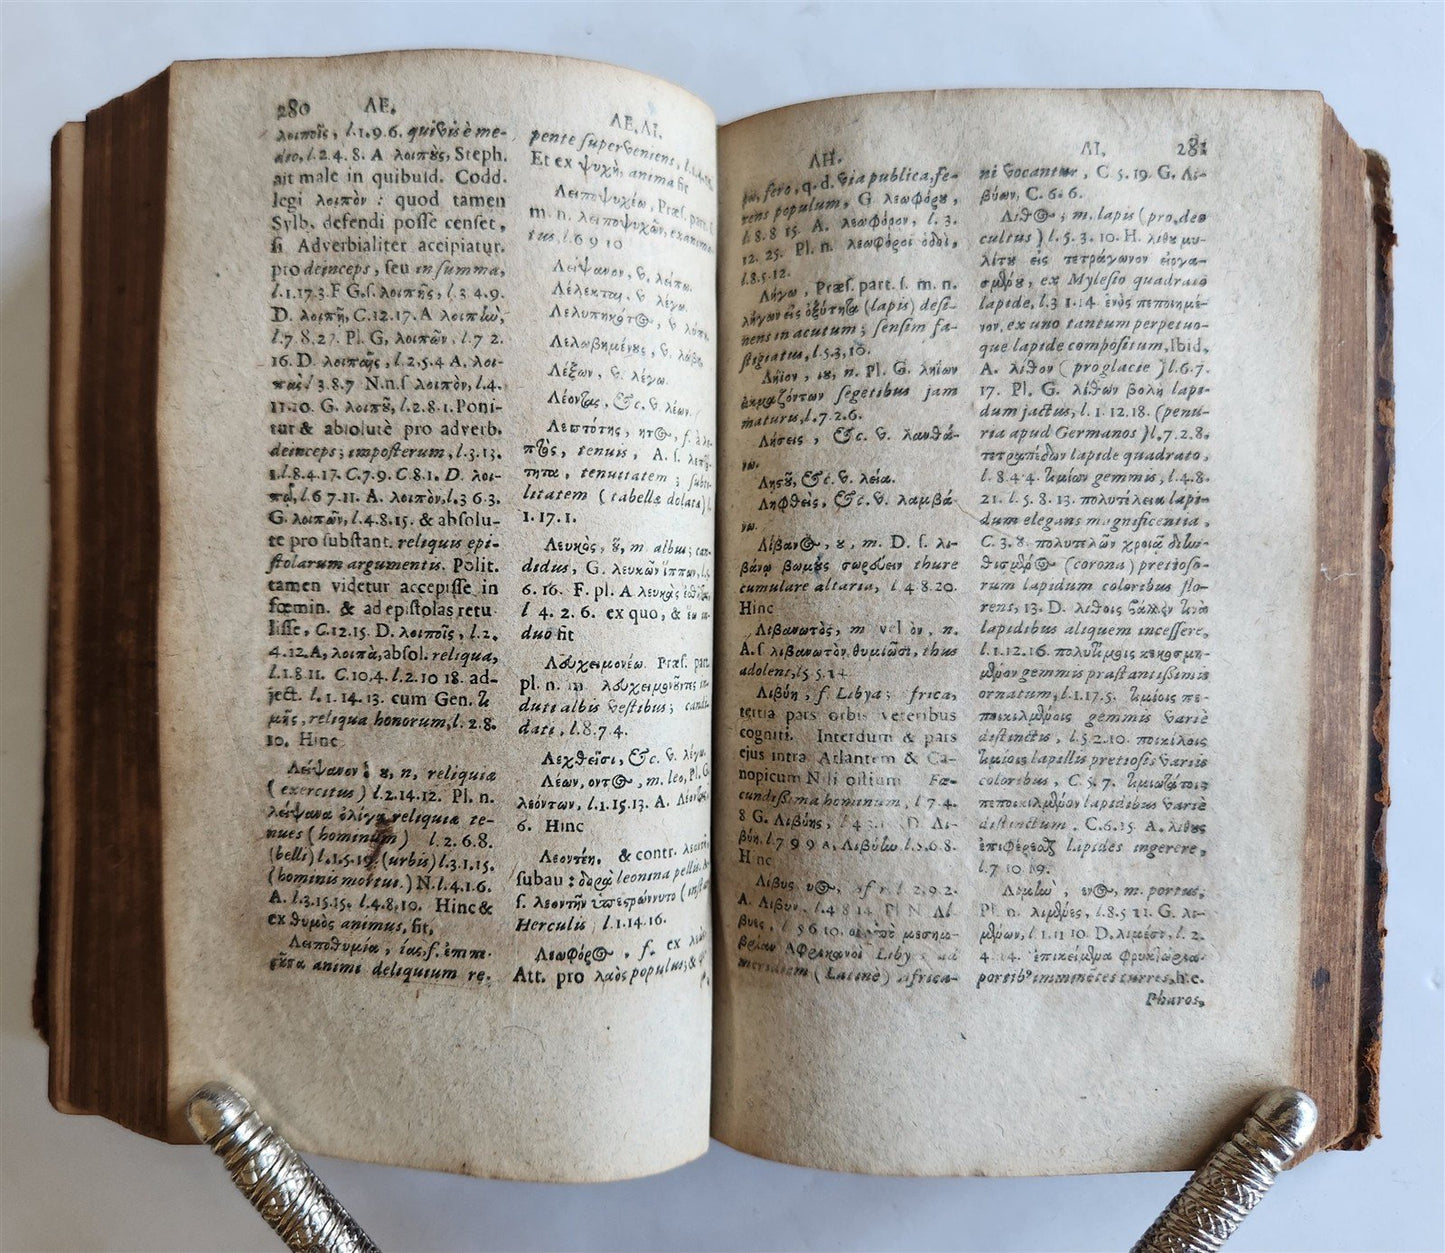 280 ΛΕ.
λοιποῖς, l.1.9.6. quivis è me-
dio, l.2.4.8. A λοιπȣ̀ς, Steph.
ait male in quibuſd. Codd.
legi λοιπὸν : quod tamen
Sylb. defendi poſſe cenſet,
ſi Adverbialiter accipiatur.
pro deinceps, ſeu in ſumma,
l.1.17.3. F G.ſ. λοιπῆς, l.3 4.9.
D. λοιπῇ, C.12.17. A λοιπὴν,
l.7 8.27. Pl. G, λοιπῶν, l.7 2.
16. D. λοιπαῖς, l.2.5.4 A. λοι-
πὰς l 3.8.7 N.n.ſ λοιπὸν, l.4.
11.10. G. λοιπȣ͂, l.2.8.1. Poni-
tur & abſolutè pro adverb.
deinceps; impoſterum, l.3.13.
1. l.8.4.17. C.7.9. C 8.1. D. λοι-
πῷ, l.6 7.11. A. λοιπὸν, l.3 6 3.
G. λοιπῶν, l.4.8.15. & abſolu-
te pro ſubſtant. reliquis epi-
ſtolarum argumentis. Polit.
tamen videtur accepiſſe in
fœmin. & ad epiſtolas retu
liſſe, C.12.15. D. λοιποῖς, l.2.
4.12. A, λοιπὰ, abſol. reliqua,
l.1.8 11. C.10.4. l.2.10 18. ad-
ject. l.1.14.13. cum Gen. τι
μῆς, reliqua honorum, l.2.8.
10. Hinc
Λείψανον, ȣ, n, reliquiæ
( exercitus ) l.2.14.12. Pl. n.
λείψανα ὀλίγα reliquiæ te-
nues ( hominum ) l.2.6.8.
(belli) l.1.5.19. (urbis) l.3.1.15.
(hominis mortui.) N. l.4.1.6.
A. l.3.15.15. l.4.8.10. Hinc &
ex θυμὸς animus, fit,
Λειποθυμία, ίας, f.
animi deliquium re.
ΛΕ, ΛΙ.
pente ſuperveniens, l.1.4.
Et ex ψυχὴ, anima fit
Λειποψυχέω, Præſ. part. ſ.
m. n. λειποψυχῶν, exanima-
tus, l.6 9 10
Λείψανον, v. λείπω.
Λέλεκται, v. λέγω.
Λελυπηκότ@, v λύπη
Λελωβημένȣς, v. λώβη
Λέξων, v. λέγω.
Λέοντας, &c. v. λέων.
Λεπτότης, ητ@, f. à λε-
πτὸς, tenuis, A. ſ. λεπτό-
τητα, tenuitatem ; ſubti-
litatem ( tabellæ dolatæ ) l.
1.17.1.
Λευκὸς, ȣ͂, m albus; can-
didus, G. λευκῶν ἵππων, l.5.
6.16. F. pl. A λευκὰς
l 4.2.6. ex quo, &
duo fit
Λευχειμονέω. Præſ. part.
pl. n. m λευχειμονȣ͂ντες in-
duti albis veſtibus ; candi-
dati, l.8.7.4.
Λεχθεῖσι, &c. v. λέγω.
Λέων, οντ@, m. leo, Pl. G.
λεόντων, l.1.15.13. A. Λέοντας
6. Hinc
Λεοντέη, & contr. λεοντῆ,
ſubau : δορὰ leonina pellis. A.
ſ. λεοντῆν ὑπεςρώννυτο (inſtar
Herculis l.1.14.16.
Λεωφόρ@, f. ex λεὼς
Att. pro λαὸς populus; & φέ-
ΛΗ.
ρω, fero, q.d. via publica, fe-
rens populum, G λεωφόρȣ,
l.8.8 15. A. λεωφόρον, l.3.
12.25. Pl. n. λεωφόροι ὁδοὶ,
l.8.5.12.
Λήγω, Præſ. part. ſ. m. n.
λήγων εἰς ὀξύτητα (lapis) deſi-
nens in acutum ; ſenſim fa-
ſtigiatus, l.5.3.10.
Λήϊον, ȣ, n. Pl. G. ληΐων
ἀκμαζόντων ſegetibus jam
maturis, l.7.2.6.
Λήσεις, &c. v. λανθά-
νω.
Λησȣ͂, &c. v. λεία.
Ληφθεὶς, &c. v. λαμβά
νω.
Λίβαν@, ȣ, m. D. ſ. λι-
βάνῳ βωμȣ̀ς σωρεύειν thure
cumulare altaria, l.4.8.20.
Hinc
Λιβανωτὸς, m vel ὸν, n.
A. ſ λιβανωτὸν θυμιῶσι, thus
adolent, l.5.5.14.
Λιβύη, f. Libya ; frica,
tertia pars orbis veteribus
cogniti. Interdum & pars
ejus intra Atlantem & Ca-
nopicum Nili oſtium Fœ-
cundiſſima hominum, l 7.4.
8 G. Λιβύης, l 4 3.1 D. Λι-
βύῃ, l.7 9 9 A, Λιβύην l.5.6.8.
Hinc
Λίβυς υ@, afri l 2.9.2.
A. Λίβυν, l.4 8 14. Pl N. Λί
βυες, l 5 6 10. οἱ ὑπὸ μεσημ-
βρίαν Αφρικανοὶ Libyς ad
meridiem ( Latinè ) Africa-
ΛΙ. 281
ni vocantur, C.5.19. G. Λι-
βύων, C.6.6.
Λίθ@ ; m. lapis ( pro deo
cultus ) l.5.3.10. H. λίθȣ μυ-
λίτȣ εἰς τετράγωνον εἰργα-
σμένȣ, ex Myleſio quadrato
lapide, l.3 1.14. ἑνὸς πεποιημέ-
νον, ex uno tantum perpetuo-
que lapide compoſitum, Ibid.
A. λίθον ( pro glacie ) l.6.7.
17. Pl. G. λίθων βολὴ lapi-
dum jactus, l.1.12.18. (penu-
ria apud Germanos ) l.7.2.8.
τετραπέδων lapide quadrato,
l.8.4 4. τιμίων gemmis, l.4.8.
21. l.5.8.13. πολυτέλεια lapi-
dum elegans magnificentia,
C.3.8. πολυτελῶν χροιᾷ διην-
θισμέν@ (corona) pretioſo-
rum lapidum coloribus flo-
rens, 13. D. λίθοις βάλλειν τινὰ
lapidibus aliquem inceſſere,
l.1.12.16. πολυτίμοις κεκοσμη-
μένον gemmis præſtantiſſimis
ornatum, l.1.17.5. τιμίοις πε-
ποικιλμένοις gemmis variè
diſtinctis, l.5 2.10. ποικίλοις
τιμίοις lapillis pretioſis variis
coloribus, C 5.7. τιμιωτάτοις
πεποικιλμένον lapidibus variè
diſtinctum. C.6.15. A. λίθȣς
ἐπιφέρεσθαι lapides ingerere,
l.7 10.19.
Λιμὴν, έν@, m. portus,
Pl. n. λιμένες, l.8.5 11. G. λι-
μένων, l.1.11 10. D. λιμέσι, l.2.
4.14. ἐπικείμενα
portibꝰ imminẽtes turres, h.e.
Pharos,